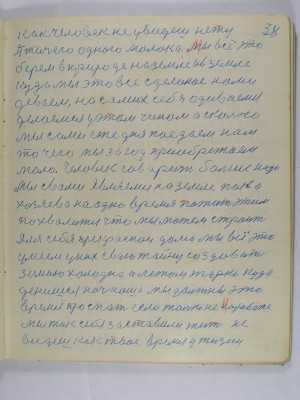 как человек не увидеш нету 38
птичего одного молока. Мы всё это
берем в природе на земле и в земле
куда мы это все сделаное нами
деваем, на самих себя одиваем и
делаемся этим чином а сколко
мы сами сче дня поедаем нам
то чего мы за год приобретаем
мало. Человек говарит больше надо
Мы с вами являеми на земле пока
хозяева на одно время потим этим
похвалится что мы можем строит
для себя прекрасной дома мы всё это
умеем у них свою тайну создоват
зимою холодно а летом жарко куда
денишся ночкою мы должны это
время проспат если только не нароботе
мы так себя заставили жит не
видеш как твое время у тизну